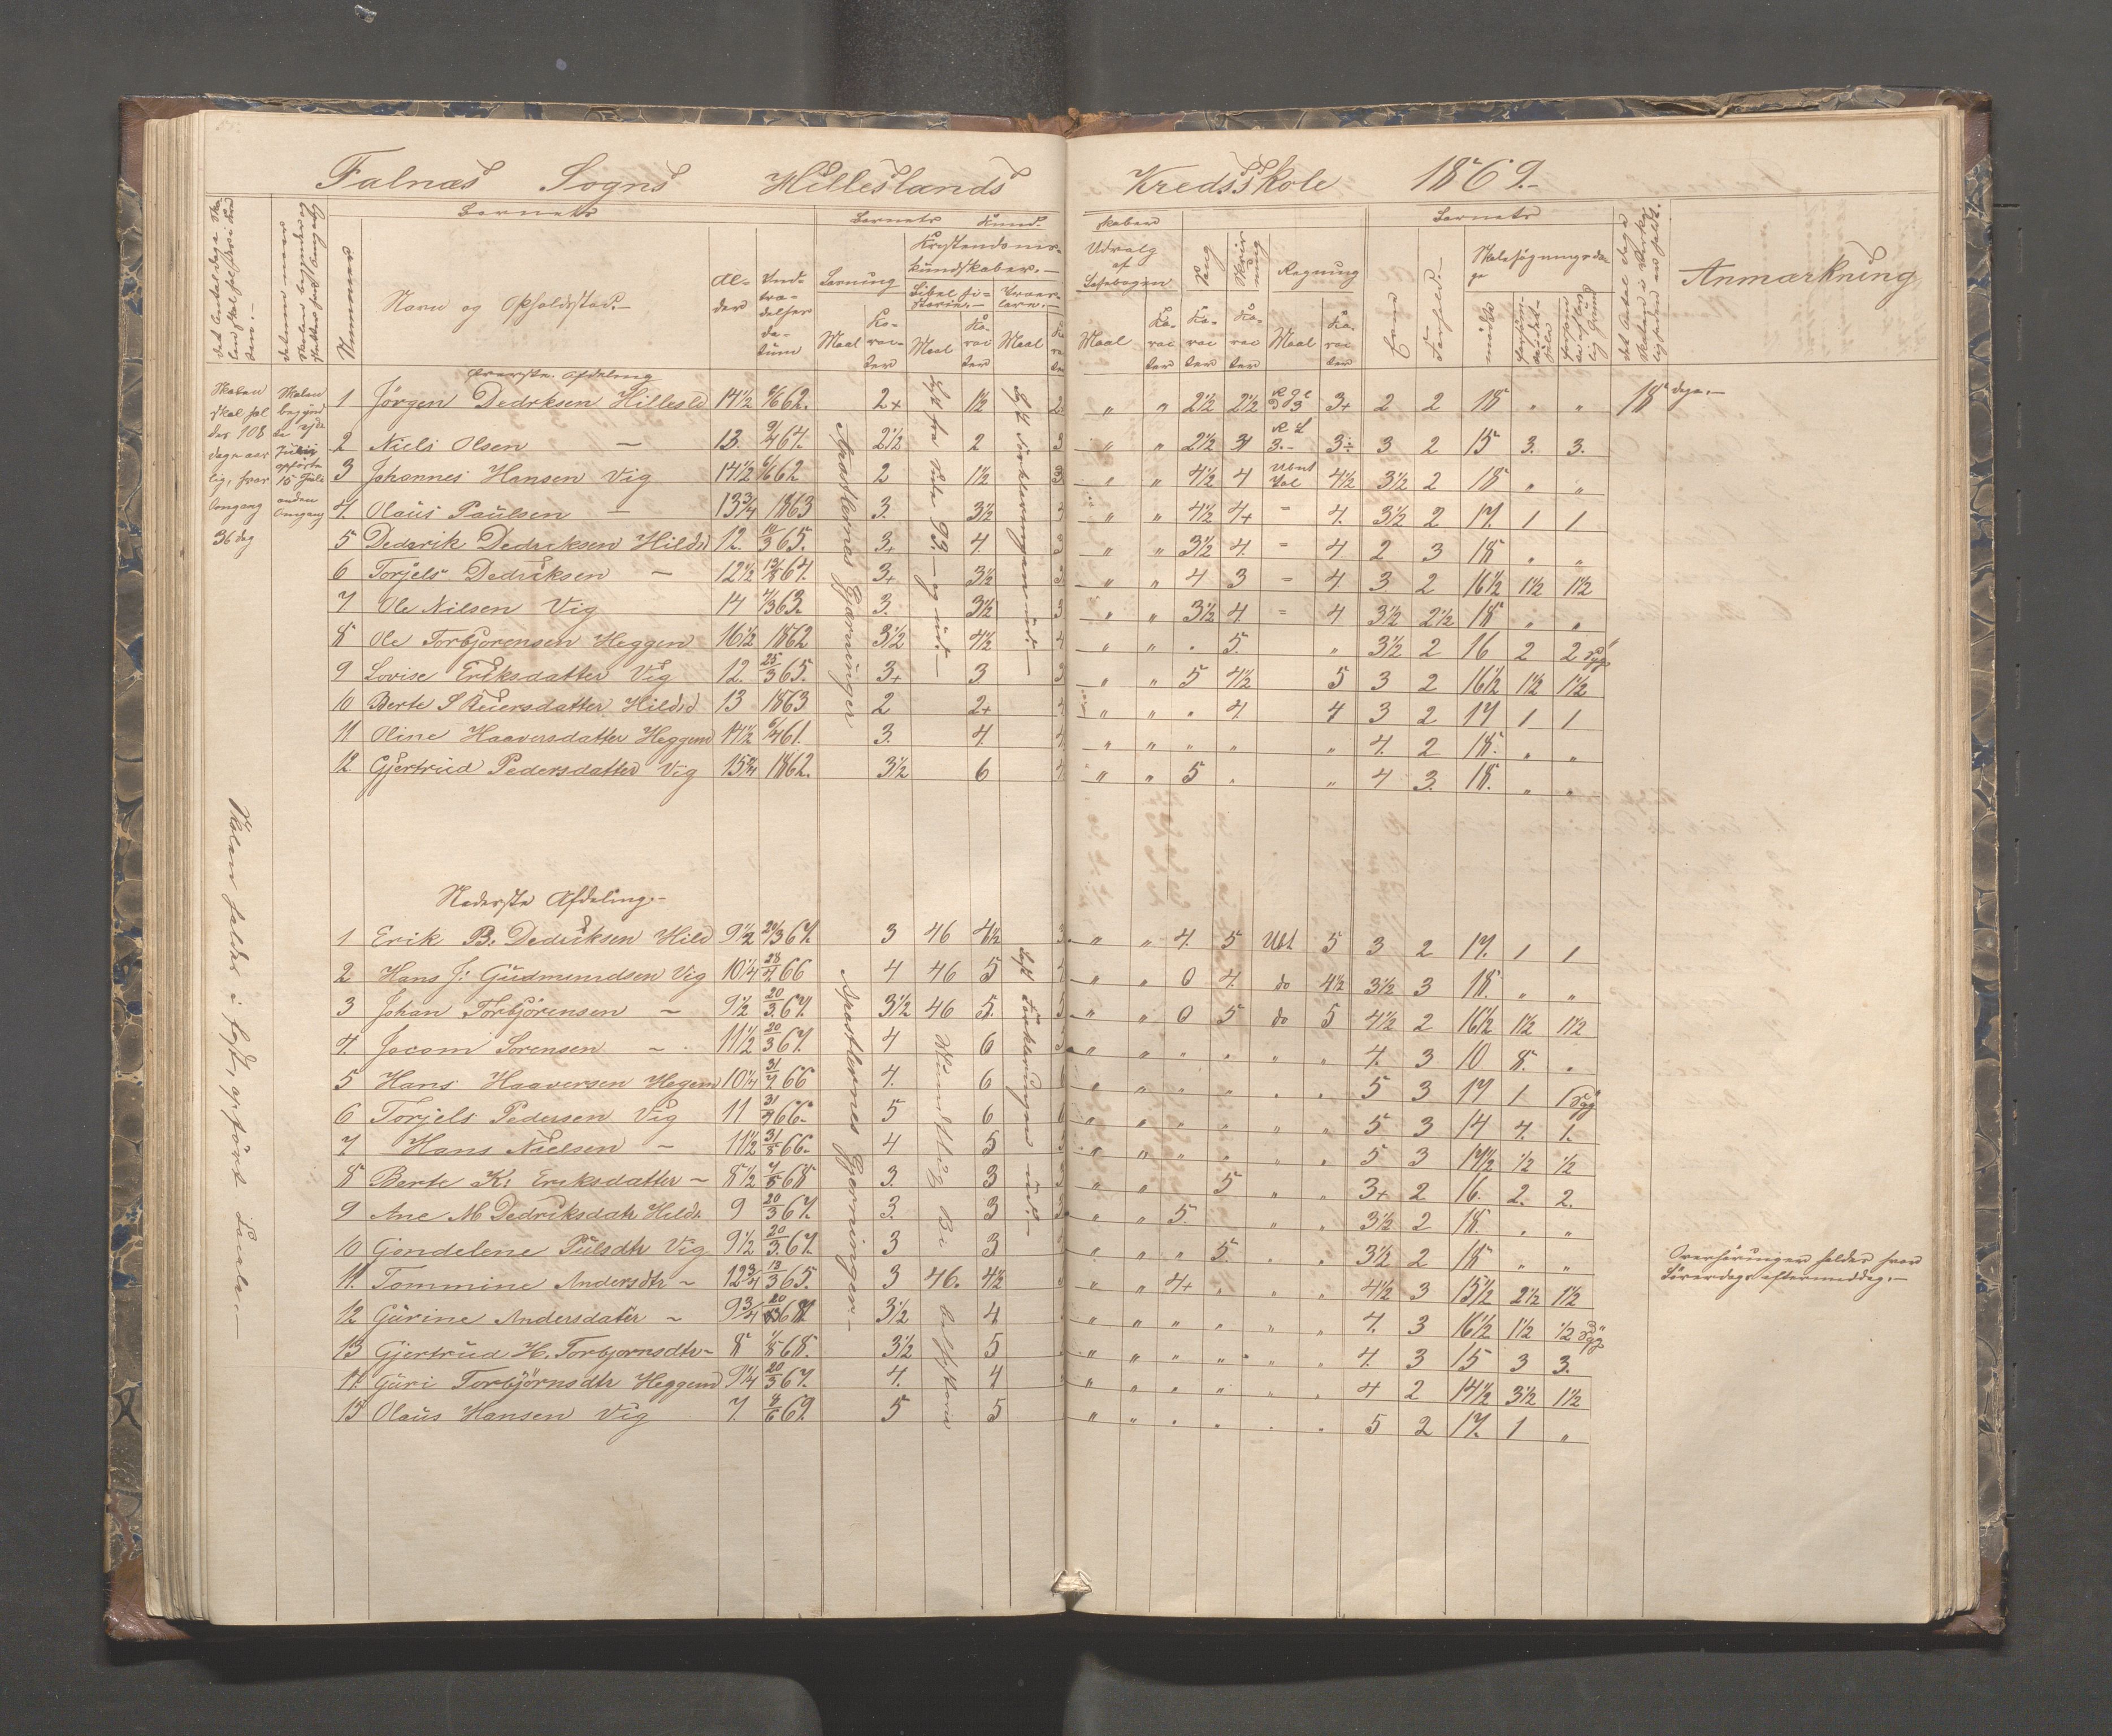 Falnæs Sogns Hilleslands Kredsskole 1869.-
Barnets
Barnets Kund-
skaber
Barnets
Nummer
Navn og Opholdssted.-
Al-
der
Ind-
træ-
delses
da-
tum
Læsning
Kristendoms-
kundskaber.-
Bibelhi-
storie.-
Troes-
lære.-
Udvalg
af
Læsebogen
Sang
Skriv
ning
Regning
Evne
Forhold.-
Skolesøgningsda-
ge
mødte
Anmærkning
Maal
Ka-
rac-
ter
Maal
Ka-
rac
ter
Maal
Maal
Ka-
rac
ter
Ka-
rac
ter
Ka-
rac
ter
Maal
Ka-
rac
ter
Øverste Afdeling
Skolen
skal hol
des 108
dage aar
lig, hver
Omgang
36 dag
Skolen
begynd
te
Juni
ophørte
15 Juli
anden
Omgang
1 Jörgen Dedrksen Hillesld 14½ 62. 2+ 1½ 2 " " 2½ 2½ 3+ 2 2 18 " " 18 dage.-
2 Niels Olsen — 13. 67. 2½ 2 3 " " 2½ 3 3.- 3÷ 3 2 15 3. 3.
3 Johannes Hansen Vig 14½ 62 2 1½ 3 " " 4½ 4 4½ 3½ 2 18 " "
4. Olaus Paulsen — 13¾ 1863 3. 3½ 3 " " 4½ 4+ - 4. 3½ 2 17. 1 1
5 Dedrik Dedriksen Hildsd 12. 65. 3+ 4. 3 " " 3½ 4. - 4 2 3 18 " "
6 Torjels Dedriksen — 12½ 67. 3+ 3½ 3 " " 4 3 - 4 3 2 16½ 1½ 1½
7 Ole Nilsen Vig 14 63. 3. 3½ 3 " " 3½ 4 - 4 3½ 2½ 18 " "
8 Ole Torbjorensen Heggem 16½ 1862 3½ 4½ 4 " " " 5. " 3½ 2 16 2 2 syg
9 Lovise Eriksdatter Vig 12. 25/3 65. 3+ 3 3 " " 5 4½ 5 3 2 16½ 1½ 1½
10 Berte S Reiersdatter Hildsd 13 1863 2 2+ " " " 4. 4 3 2 17 1 1
11 Oline Haaversdatter Heggem 14½ 61. 3. 4. 4 " " " " " 4. 2 18. " "
12 Gjertrud Pedersdatter Vig 15¾ 1862. 3½ 6 4 " " 5 " " 4 3. 18. " "
Apostlernes Gjerninger
Lgt. fra Side 99.- og ud.-
Lgt. Forklaringen ud.-
Nederste Afdeling.-
1 Erik B. Dedriksen Hild 9½ 20/3 67. 3 46 4½ 3 " " 4. 5 Ubt 5 3 2 17. 1 1
2 Hans J: Gudmundsen Vig 10¼ 66 4 46 5 4 " " 0 4. do 4½ 3½ 3 18. " "
3 Johan Torbjörensen ~ 9½ 20/3 67. 3½ 46 5. 5 " " 0 5 do 5 4½ 2 16½ 1½ 1½
4. Jacom Sorensen ~ 11½ 20/3 67. 4 6 5 " " " " " " 4. 3 10 8. "
5 Hans Haaversen Hegem 10¼ 66 4. 6 6 " " " " " " 5 3 17 1 1 syg
6 Torjels Pedersen Vig 11 66- 5 6 6 " " " " " " 5 3 14 4. 1.
7 Hans Nielsen ~ 11½ 31/8 66- 4 5 5 " " " " " " 5 3 17½ ½ ½
8 Berte K: Eriksdatter ~ 8½ 68 3. 3 3 " " 5 " " 3+ 2 16. 2. 2.
9 Ane M Dedriksdatr Hilds. 9 20/3 67. 3. 3 3 " " 5. " " 3½ 2 18. " "
10 Gondelene Pulsdtr Vig 9½ 20/3 67. 3 3 " " " 5. " " 3½ 2 18 " "
11. Tommine Andersdtr ~ 12¾ 65. 3 46. 4½ " " 4+ " " " 4½ 3 15½ 2½ 1½
12 Gurine Andersdater ~ 9¾ 3½ 4 " " " " " " 4. 3 16½ 1½ ½ syg
13 Gjertrud H. Torbjornsdtr ~ 8 68. 3½ 5 " " " " " " 4. 3 15 3 3.
14. Guri Torbjörnsdtr Heggem 9¼ 20/3 67. 4. 4 " " " " " " 4 2 14½ 3½ 1½
15 Olaus Hansen Vig 7. 69 5 5 " " " " " " 5 2 17. 1 "
Apostlernes Gjerninger.-
Mundtlig Bibelhistorie
Lgt Forklaringen ud.-
Skolen holdes i lejt, opfört Locale.-
Overhöringer holdes hver
Löverdags eftermeddag.-